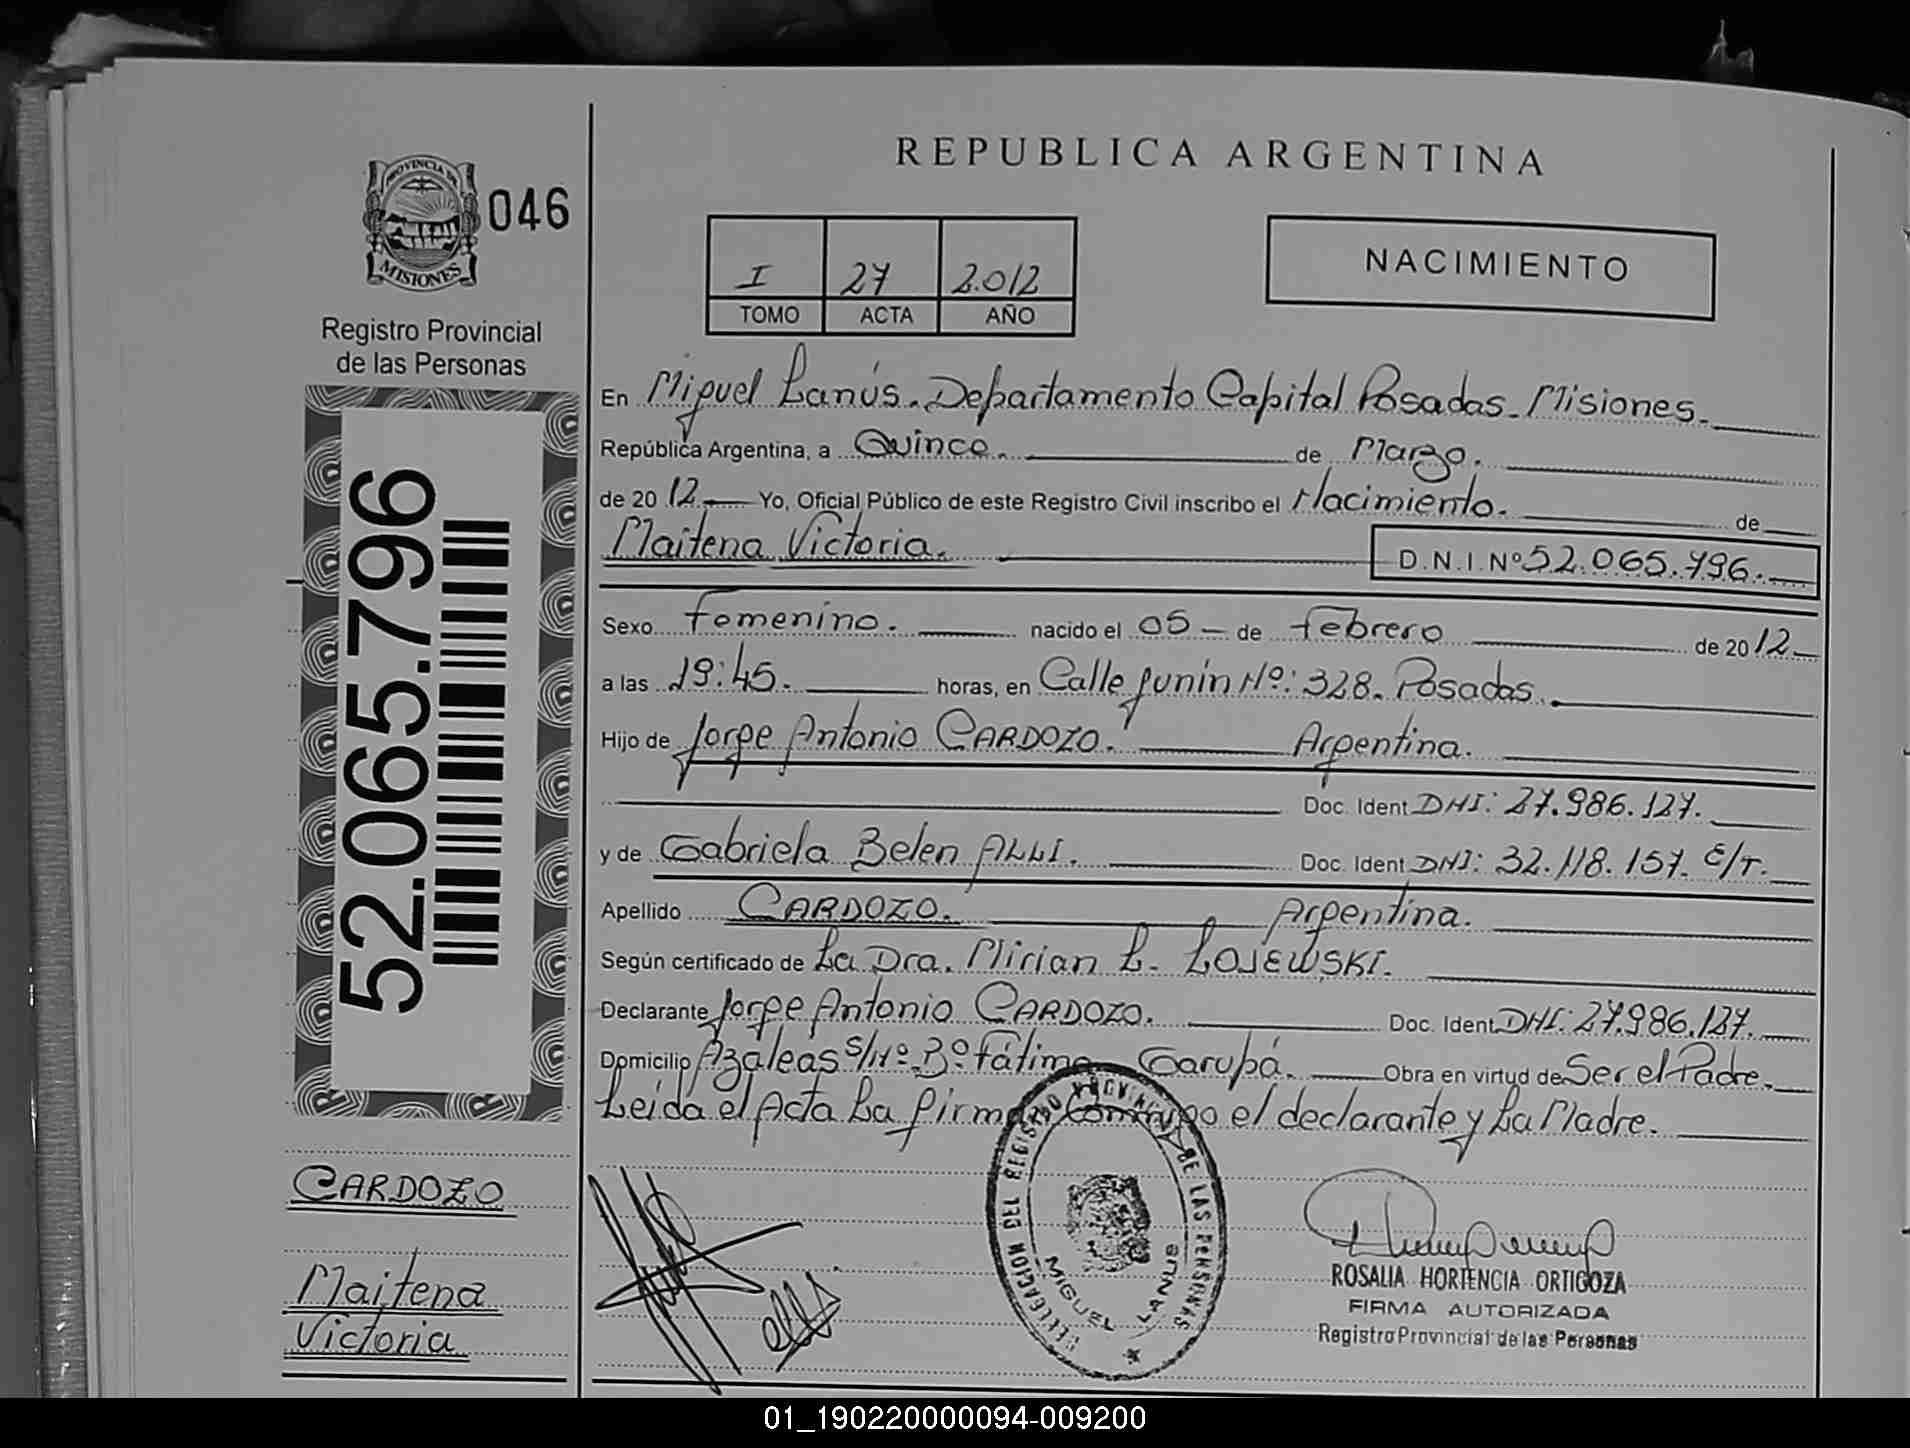 REPUBLICA ARGENTINA
PROVINCIA DE
MISIONES
046
Registro Provincial
de las Personas
I 27 2.012
TOMO ACTA AÑO
NACIMIENTO
En Miguel Lanús. Departamento Capital Posadas. Misiones.
República Argentina, a Quince. de Marzo.
de 2012 Yo, Oficial Público de este Registro Civil inscribo el Nacimiento. de
Maitena Victoria. D.N.I.Nº 52.065.796.
Sexo Femenino. nacido el 05 de Febrero de 2012
a las 19:45. horas, en Calle Junín Nº: 328. Posadas.
Hijo de Jorge Antonio CARDOZO. Argentina.
Doc. Ident. DNI: 27.986.127.
y de Gabriela Belen ALLI. Doc. Ident. DNI: 32.118.157. E/T.
Apellido CARDOZO. Argentina.
Según certificado de La Dra. Mirian L. LOJEWSKI.
Declarante Jorge Antonio CARDOZO. Doc. Ident. DNI: 27.986.127.
Domicilio Azaleas S/Nº Bº Fátima Garupá. Obra en virtud de Ser el Padre.
Leída el Acta La firma conmigo el declarante y La Madre.
52.065.796
CARDOZO
Maitena
Victoria
DELEGACION DEL REGISTRO PROVINCIAL DE LAS PERSONAS
MIGUEL LANUS
ROSALIA HORTENCIA ORTIGOZA
FIRMA AUTORIZADA
Registro Provincial de las Personas
01_190220000094-009200